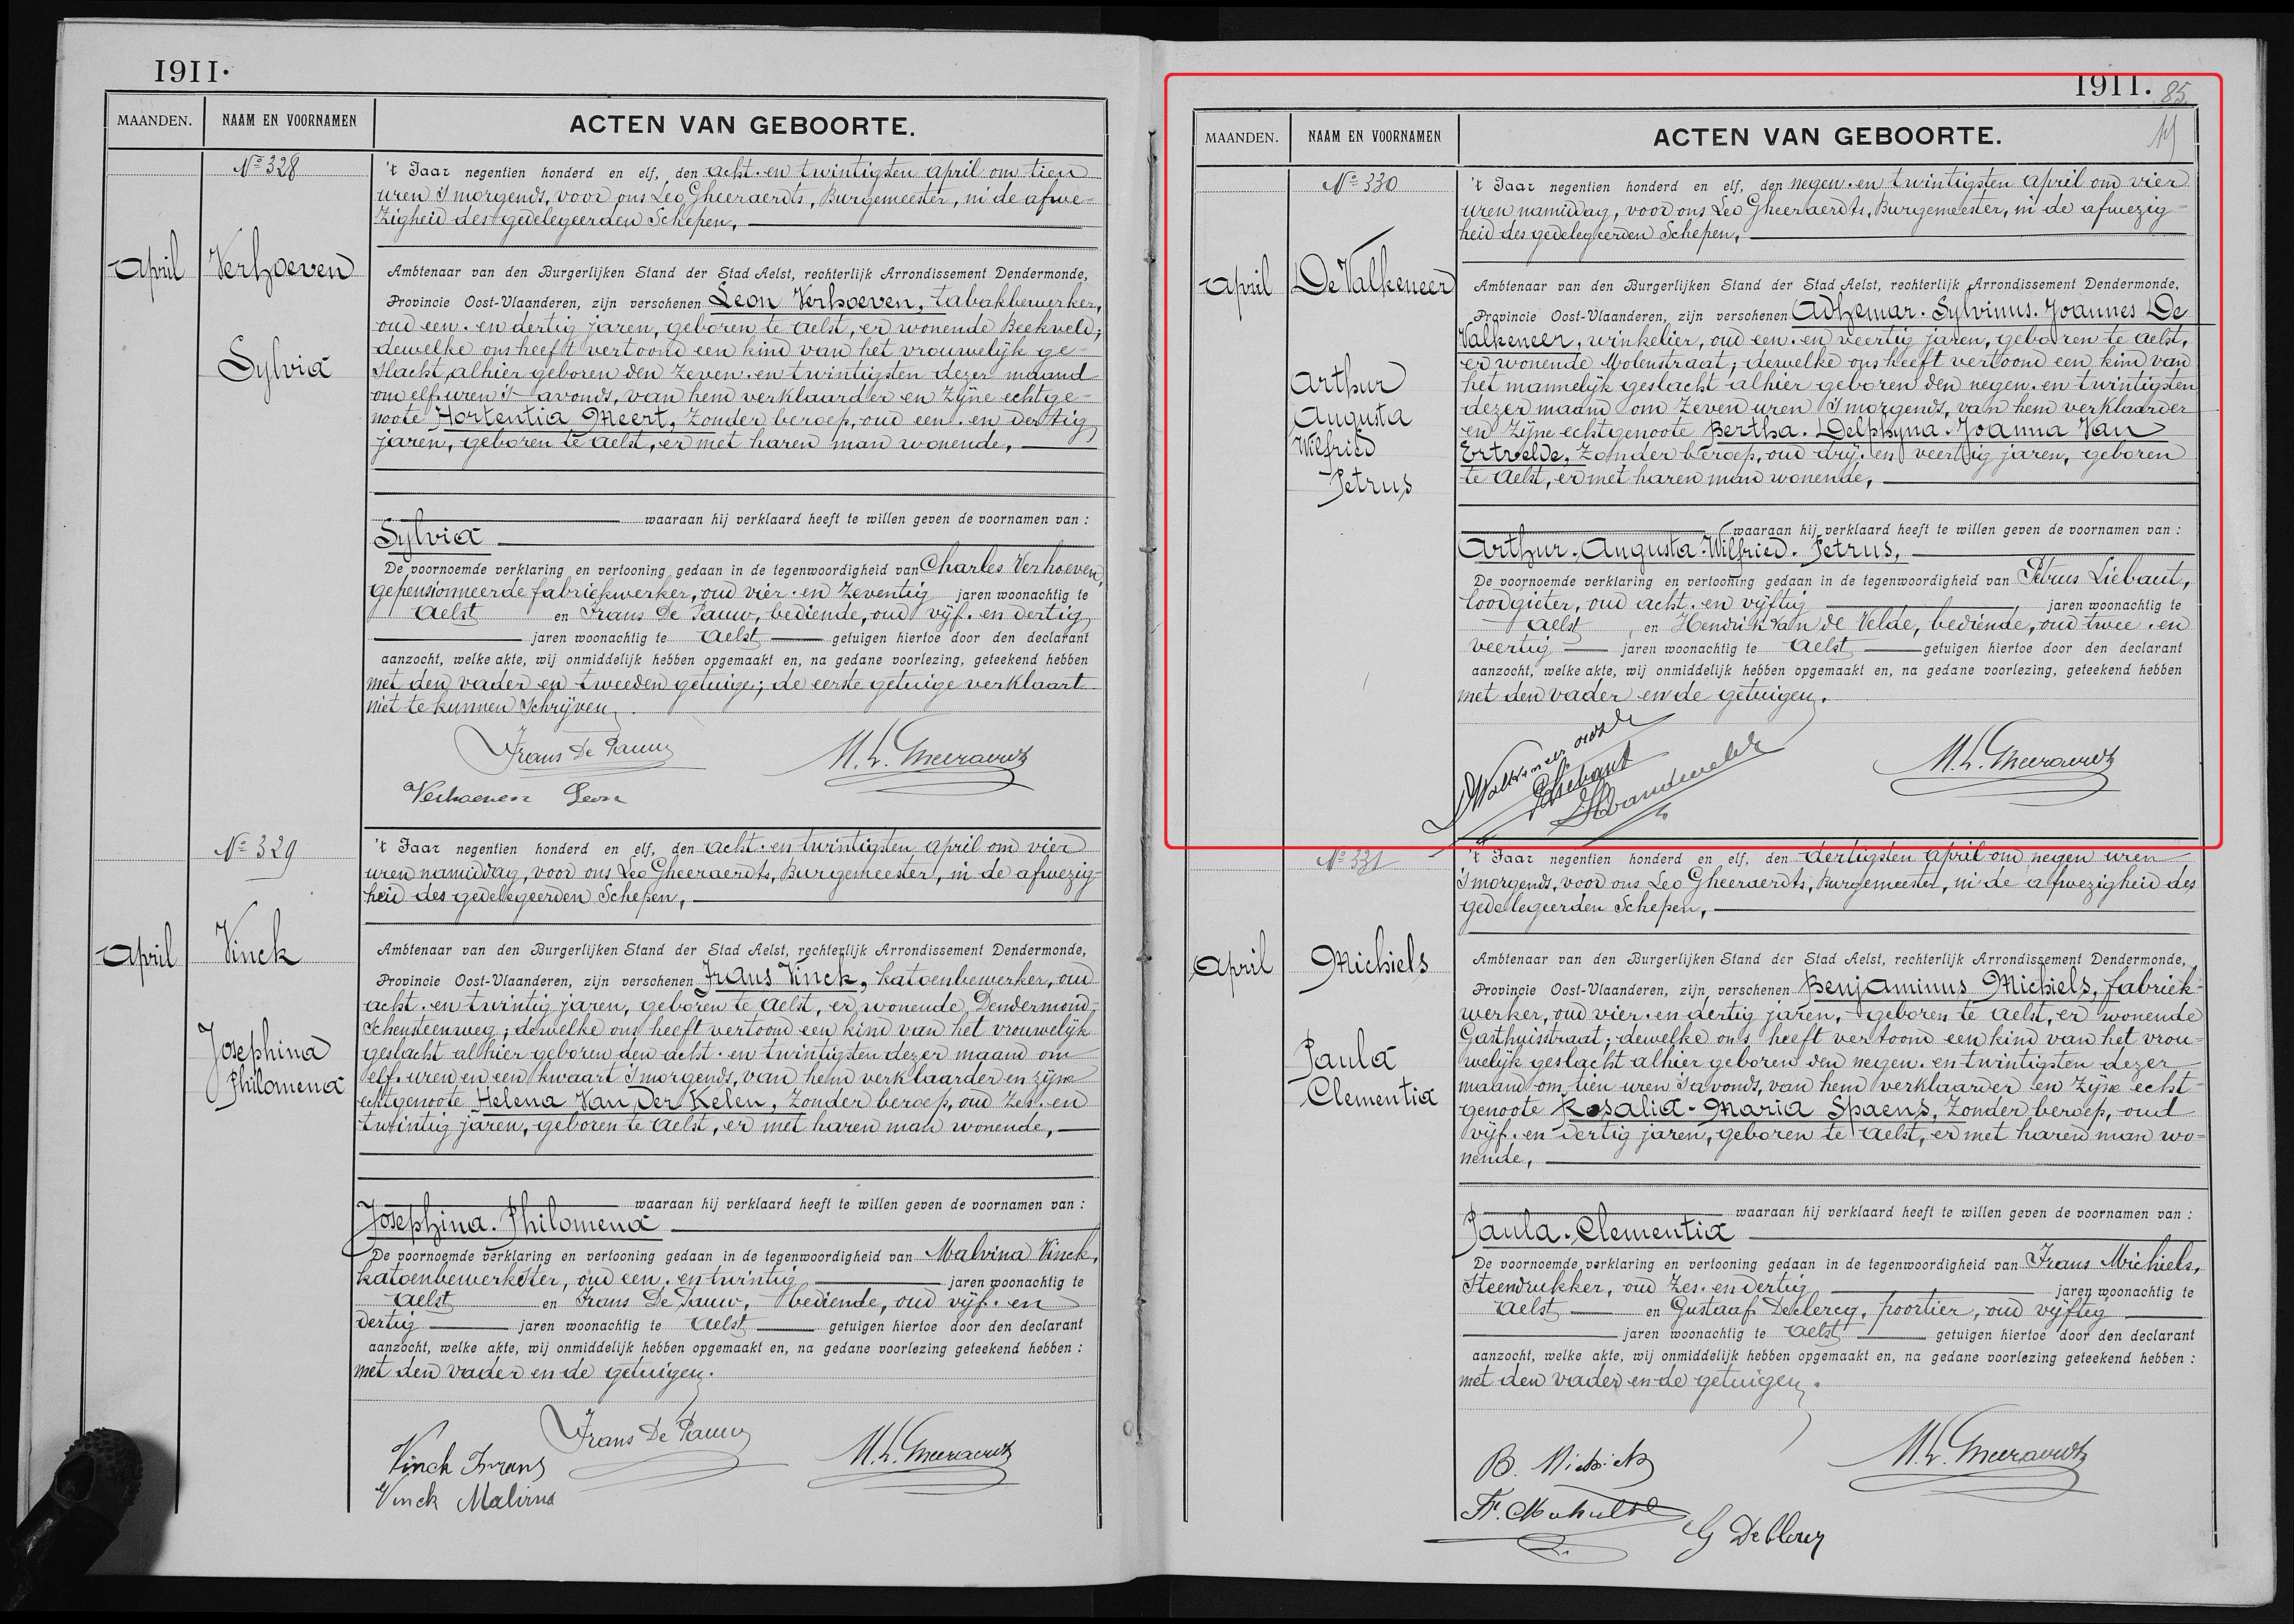 1911.
MAANDEN.
NAAM EN VOORNAMEN
ACTEN VAN GEBOORTE.
Nº 328
April
Verhoeven
Sylvia
't Jaar negentien honderd en elf, den acht. en twintigsten april om tien
uren 's morgends, voor ons Leo Gheeraerdts, Burgemeester, in de afwe-
zigheid des gedelegeerden Schepen,
Ambtenaar van den Burgerlijken Stand der Stad Aelst, rechterlijk Arrondissement Dendermonde,
Provincie Oost-Vlaanderen, zijn verschenen Leon Verhoeven, tabakbewerker,
oud een. en dertig jaren, geboren te Aelst, er wonende Beekveld;
dewelke ons heeft vertoond een kind van het vrouwelijk ge-
slacht, alhier geboren den zeven. en twintigsten dezer maand
om elf uren 's avonds, van hem verklaarder en zijne echtge-
noote Hortentia Meert, zonder beroep, oud een. en dertig
jaren, geboren te Aelst, er met haren man wonende,
waaraan hij verklaard heeft te willen geven de voornamen van :
Sylvia
De voornoemde verklaring en vertooning gedaan in de tegenwoordigheid van Charles Verhoeven,
gepensionneerde fabriekwerker, oud vier. en zeventig jaren woonachtig te
Aelst en Frans De Pauw, bediende, oud vijf. en dertig
jaren woonachtig te Aelst getuigen hiertoe door den declarant
aanzocht, welke akte, wij onmiddelijk hebben opgemaakt en, na gedane voorlezing, geteekend hebben
met den vader en tweeden getuige; de eerste getuige verklaart
niet te kunnen schrijven.
Frans De Pauw
M. L. Gheeraerdts
Verhoeven Leon
Nº 329
April
Vinck
Josephina
Philomena
't Jaar negentien honderd en elf, den acht. en twintigsten april om vier
uren namiddag, voor ons Leo Gheeraerdts, Burgemeester, in de afwezig-
heid des gedelegeerden Schepen,
Ambtenaar van den Burgerlijken Stand der Stad Aelst, rechterlijk Arrondissement Dendermonde,
Provincie Oost-Vlaanderen, zijn verschenen Frans Vinck, katoenbewerker, oud
acht. en twintig jaren, geboren te Aelst, er wonende Dendermond-
schensteenweg; dewelke ons heeft vertoond een kind van het vrouwelijk
geslacht alhier geboren den acht. en twintigsten dezer maand om
elf. uren en een kwaart 's morgends, van hem verklaarder en zijne
echtgenoote Helena Van Der Kelen, zonder beroep, oud zes. en
twintig jaren, geboren te Aelst, er met haren man wonende,
waaraan hij verklaard heeft te willen geven de voornamen van :
Josephina. Philomena
De voornoemde verklaring en vertooning gedaan in de tegenwoordigheid van Malvina Vinck,
katoenbewerkster, oud een. en twintig jaren woonachtig te
Aelst en Frans De Pauw, bediende, oud vijf. en
dertig jaren woonachtig te Aelst getuigen hiertoe door den declarant
aanzocht, welke akte, wij onmiddelijk hebben opgemaakt en, na gedane voorlezing geteekend hebben :
met den vader en de getuigen.
Frans De Pauw
M. L. Gheeraerdts
Vinck Frans
Vinck Malvina
1911.
85
MAANDEN.
NAAM EN VOORNAMEN
ACTEN VAN GEBOORTE.
Nº 330
April
De Valkeneer
Arthur
Augusta
Wilfried
Petrus
't Jaar negentien honderd en elf, den negen. en twintigsten april om vier
uren namiddag, voor ons Leo Gheeraerdts, Burgemeester, in de afwezig-
heid des gedelegeerden Schepen,
Ambtenaar van den Burgerlijken Stand der Stad Aelst, rechterlijk Arrondissement Dendermonde,
Provincie Oost-Vlaanderen, zijn verschenen Adhemar. Sylvinus. Joannes De
Valkeneer, winkelier, oud een. en veertig jaren, geboren te Aelst,
er wonende Molenstraat; dewelke ons heeft vertoond een kind van
het mannelijk geslacht alhier geboren den negen. en twintigsten
dezer maand om zeven uren 's morgends, van hem verklaarder
en zijne echtgenoote Bertha. Delphyna. Joanna Van
Ertvelde, zonder beroep, oud drij. en veertig jaren, geboren
te Aelst, er met haren man wonende,
waaraan hij verklaard heeft te willen geven de voornamen van :
Arthur. Augusta. Wilfried. Petrus,
De voornoemde verklaring en vertooning gedaan in de tegenwoordigheid van Petrus Liebaut,
loodgieter, oud acht. en vijftig jaren woonachtig te
Aelst, en Hendrik Van de Velde, bediende, oud twee. en
veertig jaren woonachtig te Aelst getuigen hiertoe door den declarant
aanzocht, welke akte, wij onmiddelijk hebben opgemaakt en, na gedane voorlezing, geteekend hebben
met den vader en de getuigen.
Liebaut
HVandevelde
M. L. Gheeraerdts
Nº 331
April
Michiels
Paula
Clementia
't Jaar negentien honderd en elf, den dertigsten april om negen uren
's morgends, voor ons Leo Gheeraerdts, Burgemeester, in de afwezigheid des
gedelegeerden Schepen,
Ambtenaar van den Burgerlijken Stand der Stad Aelst, rechterlijk Arrondissement Dendermonde,
Provincie Oost-Vlaanderen, zijn verschenen Benjaminus Michiels, fabriek-
werker, oud vier. en dertig jaren, geboren te Aelst, er wonende
Gasthuisstraat; dewelke ons heeft vertoond een kind van het vrou-
welijk geslacht alhier geboren den negen. en twintigsten dezer
maand om tien uren 's avonds, van hem verklaarder en zijne echt-
genoote Rosalia-Maria Spaens, zonder beroep, oud
vijf. en dertig jaren, geboren te Aelst, er met haren man wo-
nende,
waaraan hij verklaard heeft te willen geven de voornamen van :
Paula. Clementia
De voornoemde verklaring en vertooning gedaan in de tegenwoordigheid van Frans Michiels,
steendrukker, oud zes. en dertig jaren woonachtig te
Aelst en Gustaaf Declercq, poortier, oud vijftig
jaren woonachtig te Aelst getuigen hiertoe door den declarant
aanzocht, welke akte, wij onmiddelijk hebben opgemaakt en, na gedane voorlezing geteekend hebben :
met den vader en de getuigen.
B. Michiels
M. L. Gheeraerdts
Fr. Michiels
G Declercq